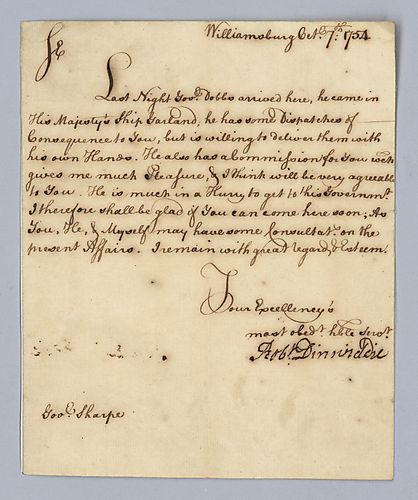 Williamsburg Octr. 7th. 1754
Sr
Last Night Govr. Dobbs arrived here, he came in
His Majesty's Ship Garland, he has some Dispatches of
Consequence to You, but is willing to deliver them with
his own Hands. He also has a Commission for You wch
gives me much Pleasure, & I think will be very agreeable
to You. He is much in a Hurry to get to his Governmt.
I therefore shall be glad if You can come here soon; As
You, He, & Myself may have some Consultatn. on the
present Affairs. I remain with great regard & Esteem.
Your Excellency's
most obedt. hble servt.
Robt. Dinwiddie
Govr. Sharpe